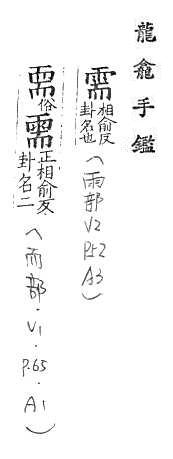 龍龕手鑑
需相俞反卦名也(雨部 V2 P52 A3)
俗需正相俞反卦名二(雨部.V1.P.65.A1)